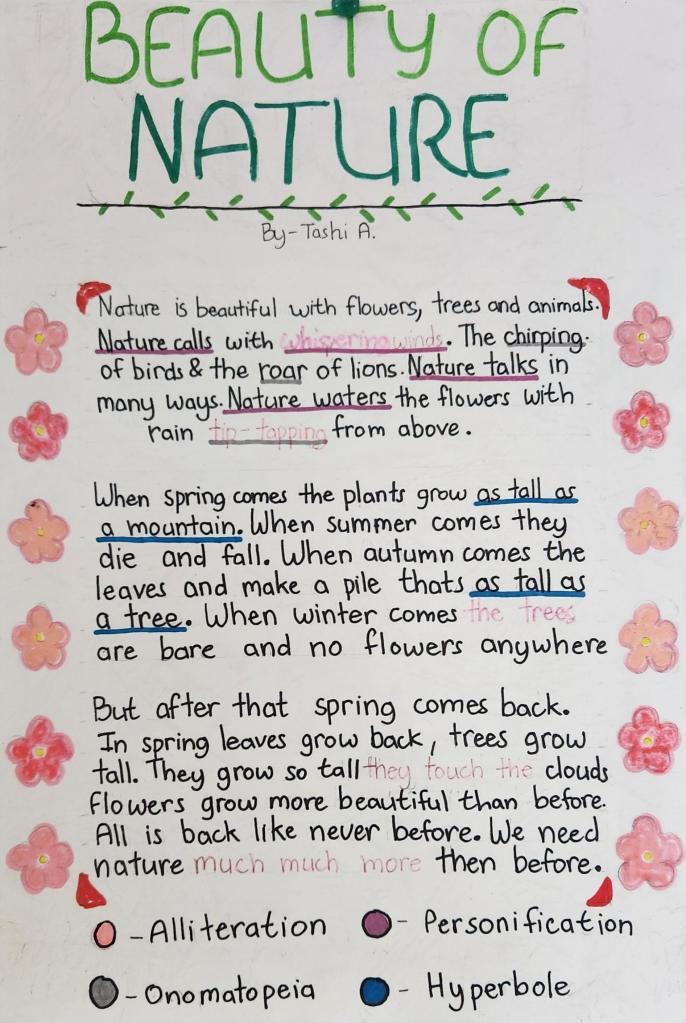 BEAUTY OF
NATURE
By-Tashi A.
Nature is beautiful with flowers, trees and animals.
Nature calls with whispering winds. The chirping
of birds & the roar of lions. Nature talks in
many ways. Nature waters the flowers with
rain tip-tapping from above.
When spring comes the plants grow as tall as
a mountain. When summer comes they
die and fall. When autumn comes the
leaves and make a pile thats as tall as
a tree. When winter comes the trees
are bare and no flowers anywhere
But after that spring comes back.
In spring leaves grow back, trees grow
tall. They grow so tall they touch the clouds
flowers grow more beautiful than before.
All is back like never before. We need
nature much much more then before.
- Alliteration
- Personification
- Onomatopeia
- Hyperbole